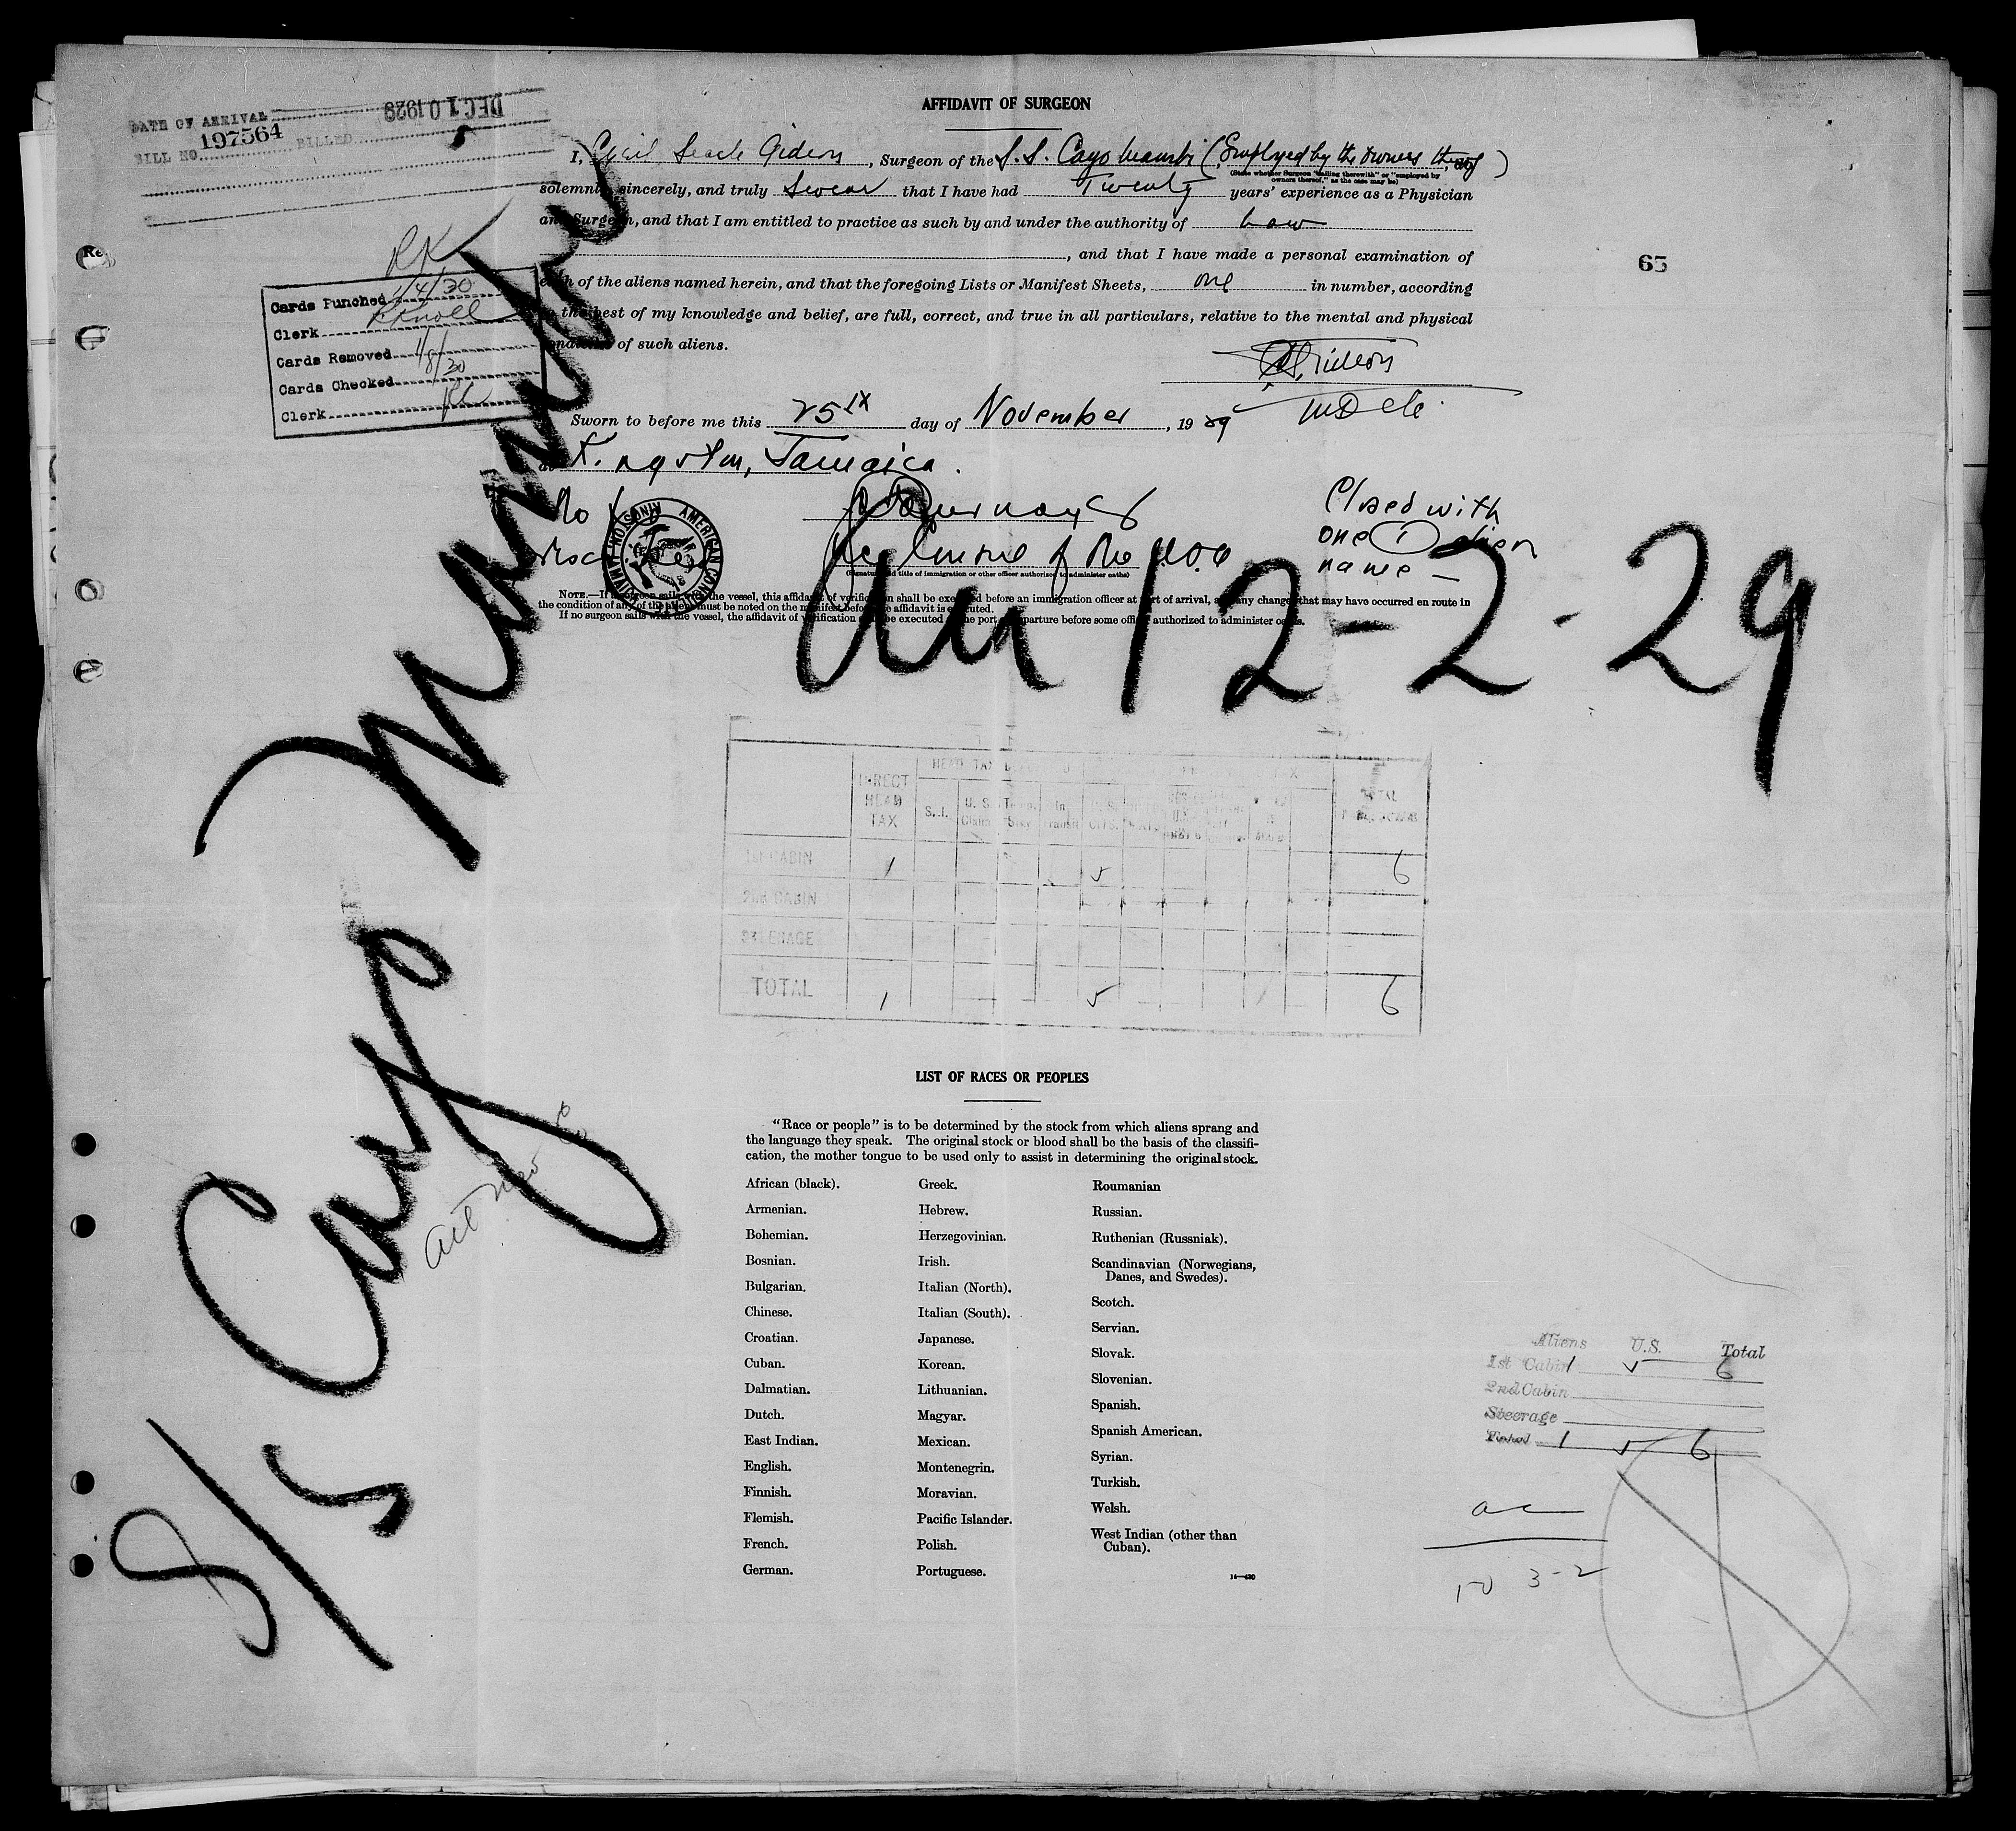 DATE OF ARRIVAL
DEC 10 1929
BILL NO. 197564 BILLED
AFFIDAVIT OF SURGEON
I, Cecil Gideon, Surgeon of the S.S. Cayo Mambi (Employed by the Owners thereof)
(State whether Surgeon "sailing therewith" or "employed by
owners thereof," as the case may be)
solemnly, sincerely, and truly Swear that I have had Twenty years' experience as a Physician
and Surgeon, and that I am entitled to practice as such by and under the authority of Law
, and that I have made a personal examination of
each of the aliens named herein, and that the foregoing Lists or Manifest Sheets, one in number, according
to the best of my knowledge and belief, are full, correct, and true in all particulars, relative to the mental and physical
condition of such aliens.
65
RK
Cards Punched 1/4/30
Clerk KKnoll
Cards Removed 1/8/30
Cards Checked
Clerk RK
Gideon
Sworn to before me this 25th day of November, 1929
at Kingston, Jamaica.
AMERICAN CONSULATE KINGSTON JAMAICA
Closed with
one (1) alien
name —
(Signature and title of immigration or other officer authorized to administer oaths)
NOTE.—If a surgeon sails with the vessel, this affidavit of verification shall be executed before an immigration officer at port of arrival, and any change that may have occurred en route in
the condition of any of the aliens must be noted on the manifest before the affidavit is executed.
If no surgeon sails with the vessel, the affidavit of verification shall be executed at the port of departure before some officer authorized to administer oaths.
S/S Cayo Mambi
Arr 12-2-29
HEAD TAX
DIRECT HEAD TAX S.I. U.S. TOTAL
1st CABIN 1 5 6
2nd CABIN
STEERAGE
TOTAL 1 5 6
LIST OF RACES OR PEOPLES
"Race or people" is to be determined by the stock from which aliens sprang and
the language they speak. The original stock or blood shall be the basis of the classifi-
cation, the mother tongue to be used only to assist in determining the original stock.
African (black).
Armenian.
Bohemian.
Bosnian.
Bulgarian.
Chinese.
Croatian.
Cuban.
Dalmatian.
Dutch.
East Indian.
English.
Finnish.
Flemish.
French.
German.
Greek.
Hebrew.
Herzegovinian.
Irish.
Italian (North).
Italian (South).
Japanese.
Korean.
Lithuanian.
Magyar.
Mexican.
Montenegrin.
Moravian.
Pacific Islander.
Polish.
Portuguese.
Roumanian
Russian.
Ruthenian (Russniak).
Scandinavian (Norwegians,
Danes, and Swedes).
Scotch.
Servian.
Slovak.
Slovenian.
Spanish.
Spanish American.
Syrian.
Turkish.
Welsh.
West Indian (other than
Cuban).
14—430
Aliens U.S. Total
1st Cabin 1 5 6
2nd Cabin
Steerage
Total 1 5 6